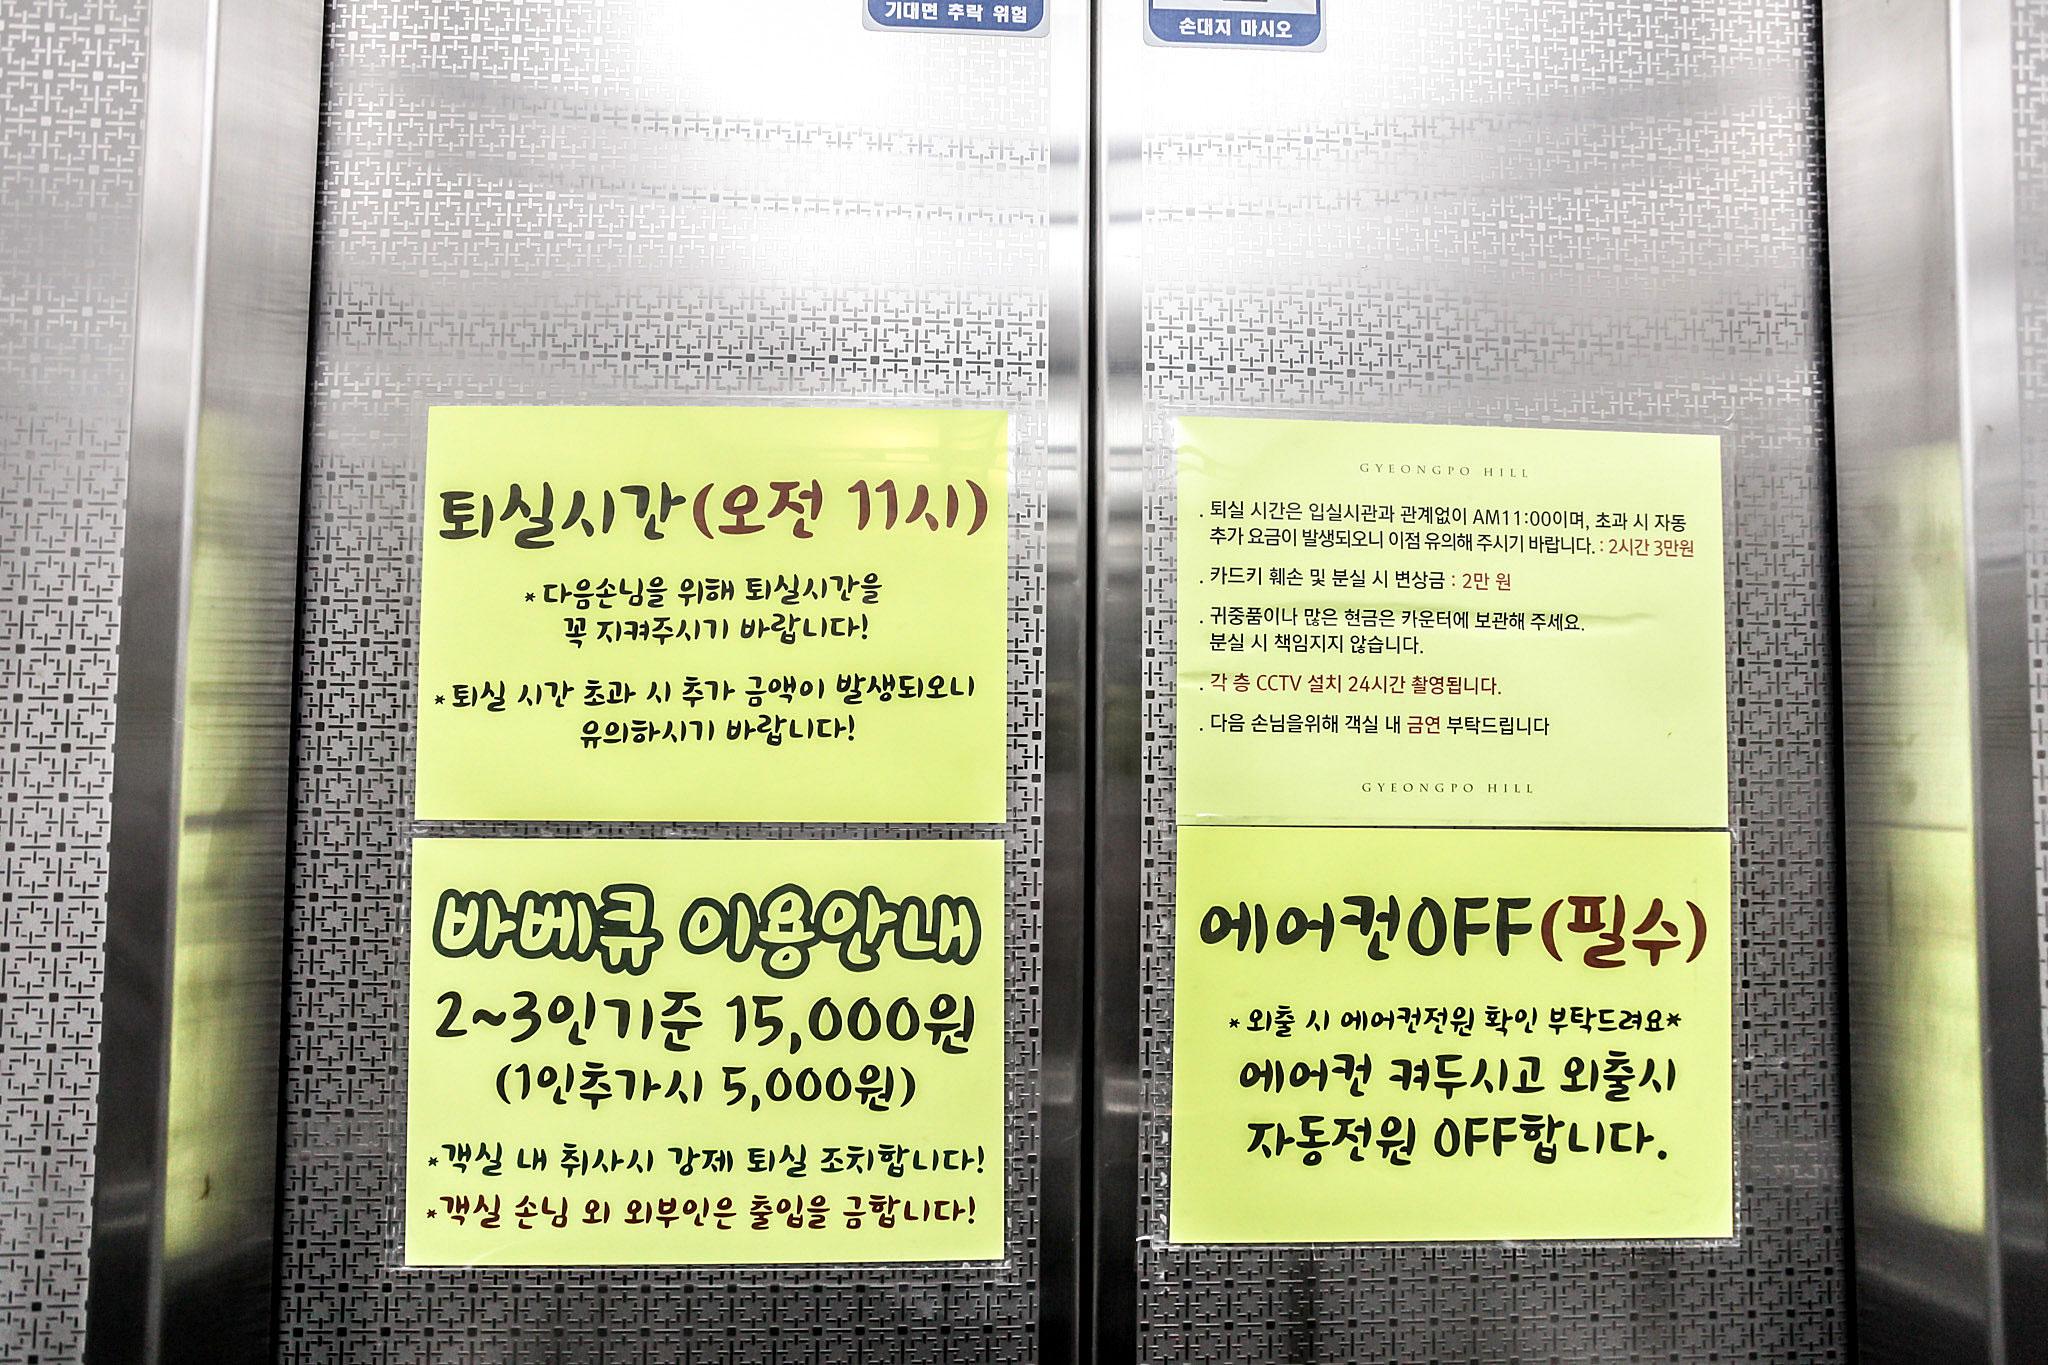 기대면 추락 위험
손대지 마시오
퇴실시간(오전 11시)
*다음손님을 위해 퇴실시간을
꼭 지켜주시기 바랍니다!
*퇴실 시간 초과 시 추가 금액이 발생되오니
유의하시기 바랍니다!
GYEONGPO HILL
. 퇴실 시간은 입실시관과 관계없이 AM11:00이며, 초과 시 자동
추가 요금이 발생되오니 이점 유의해 주시기 바랍니다. : 2시간 3만원
. 카드키 훼손 및 분실 시 변상금 : 2만 원
. 귀중품이나 많은 현금은 카운터에 보관해 주세요.
분실 시 책임지지 않습니다.
. 각 층 CCTV 설치 24시간 촬영됩니다.
. 다음 손님을위해 객실 내 금연 부탁드립니다
GYEONGPO HILL
바베큐 이용안내
2~3인기준 15,000원
(1인추가시 5,000원)
*객실 내 취사시 강제 퇴실 조치합니다!
*객실 손님 외 외부인은 출입을 금합니다!
에어컨OFF(필수)
*외출 시 에어컨전원 확인 부탁드려요*
에어컨 켜두시고 외출시
자동전원 OFF합니다.